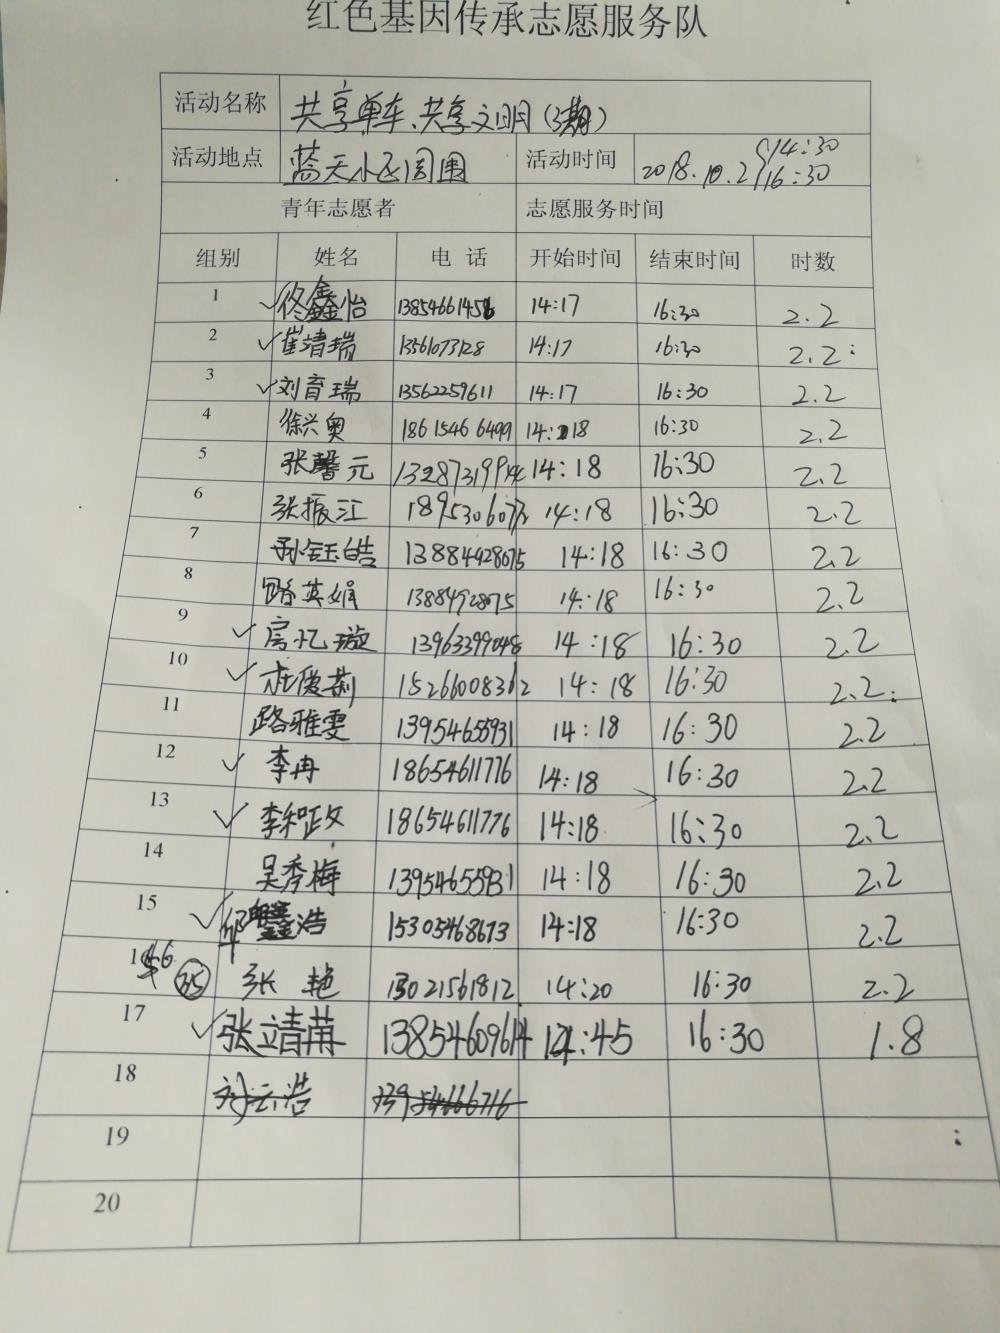 红色基因传承志愿服务队
活动名称 共享单车、共享文明(3期)
活动地点 蓝天小区周围 活动时间 2018.10.2 14:30 16:30
青年志愿者 志愿服务时间
组别 姓名 电话 开始时间 结束时间 时数
1 佟鑫怡 14:17 16:30 2.2
2 崔靖瑞 13561073128 14:17 16:30 2.2
3 刘育瑞 13562259611 14:17 16:30 2.2
4 徐兴奥 18615466499 14:18 16:30 2.2
5 张馨元 14:18 16:30 2.2
6 张振江 14:18 16:30 2.2
7 孙钰皓 13884928075 14:18 16:30 2.2
8 路英娟 13884928075 14:18 16:30 2.2
9 房忆璇 13963399048 14:18 16:30 2.2
10 15266008362 14:18 16:30 2.2
11 路雅雯 13954655931 14:18 16:30 2.2
12 李冉 18654611776 14:18 16:30 2.2
13 李和政 18654611776 14:18 16:30 2.2
14 吴秀梅 13954655931 14:18 16:30 2.2
15 邱鑫浩 15305468673 14:18 16:30 2.2
16 35 张艳 13021561812 14:20 16:30 2.2
17 张立清苒 13854609614 14:45 16:30 1.8
18
19
20